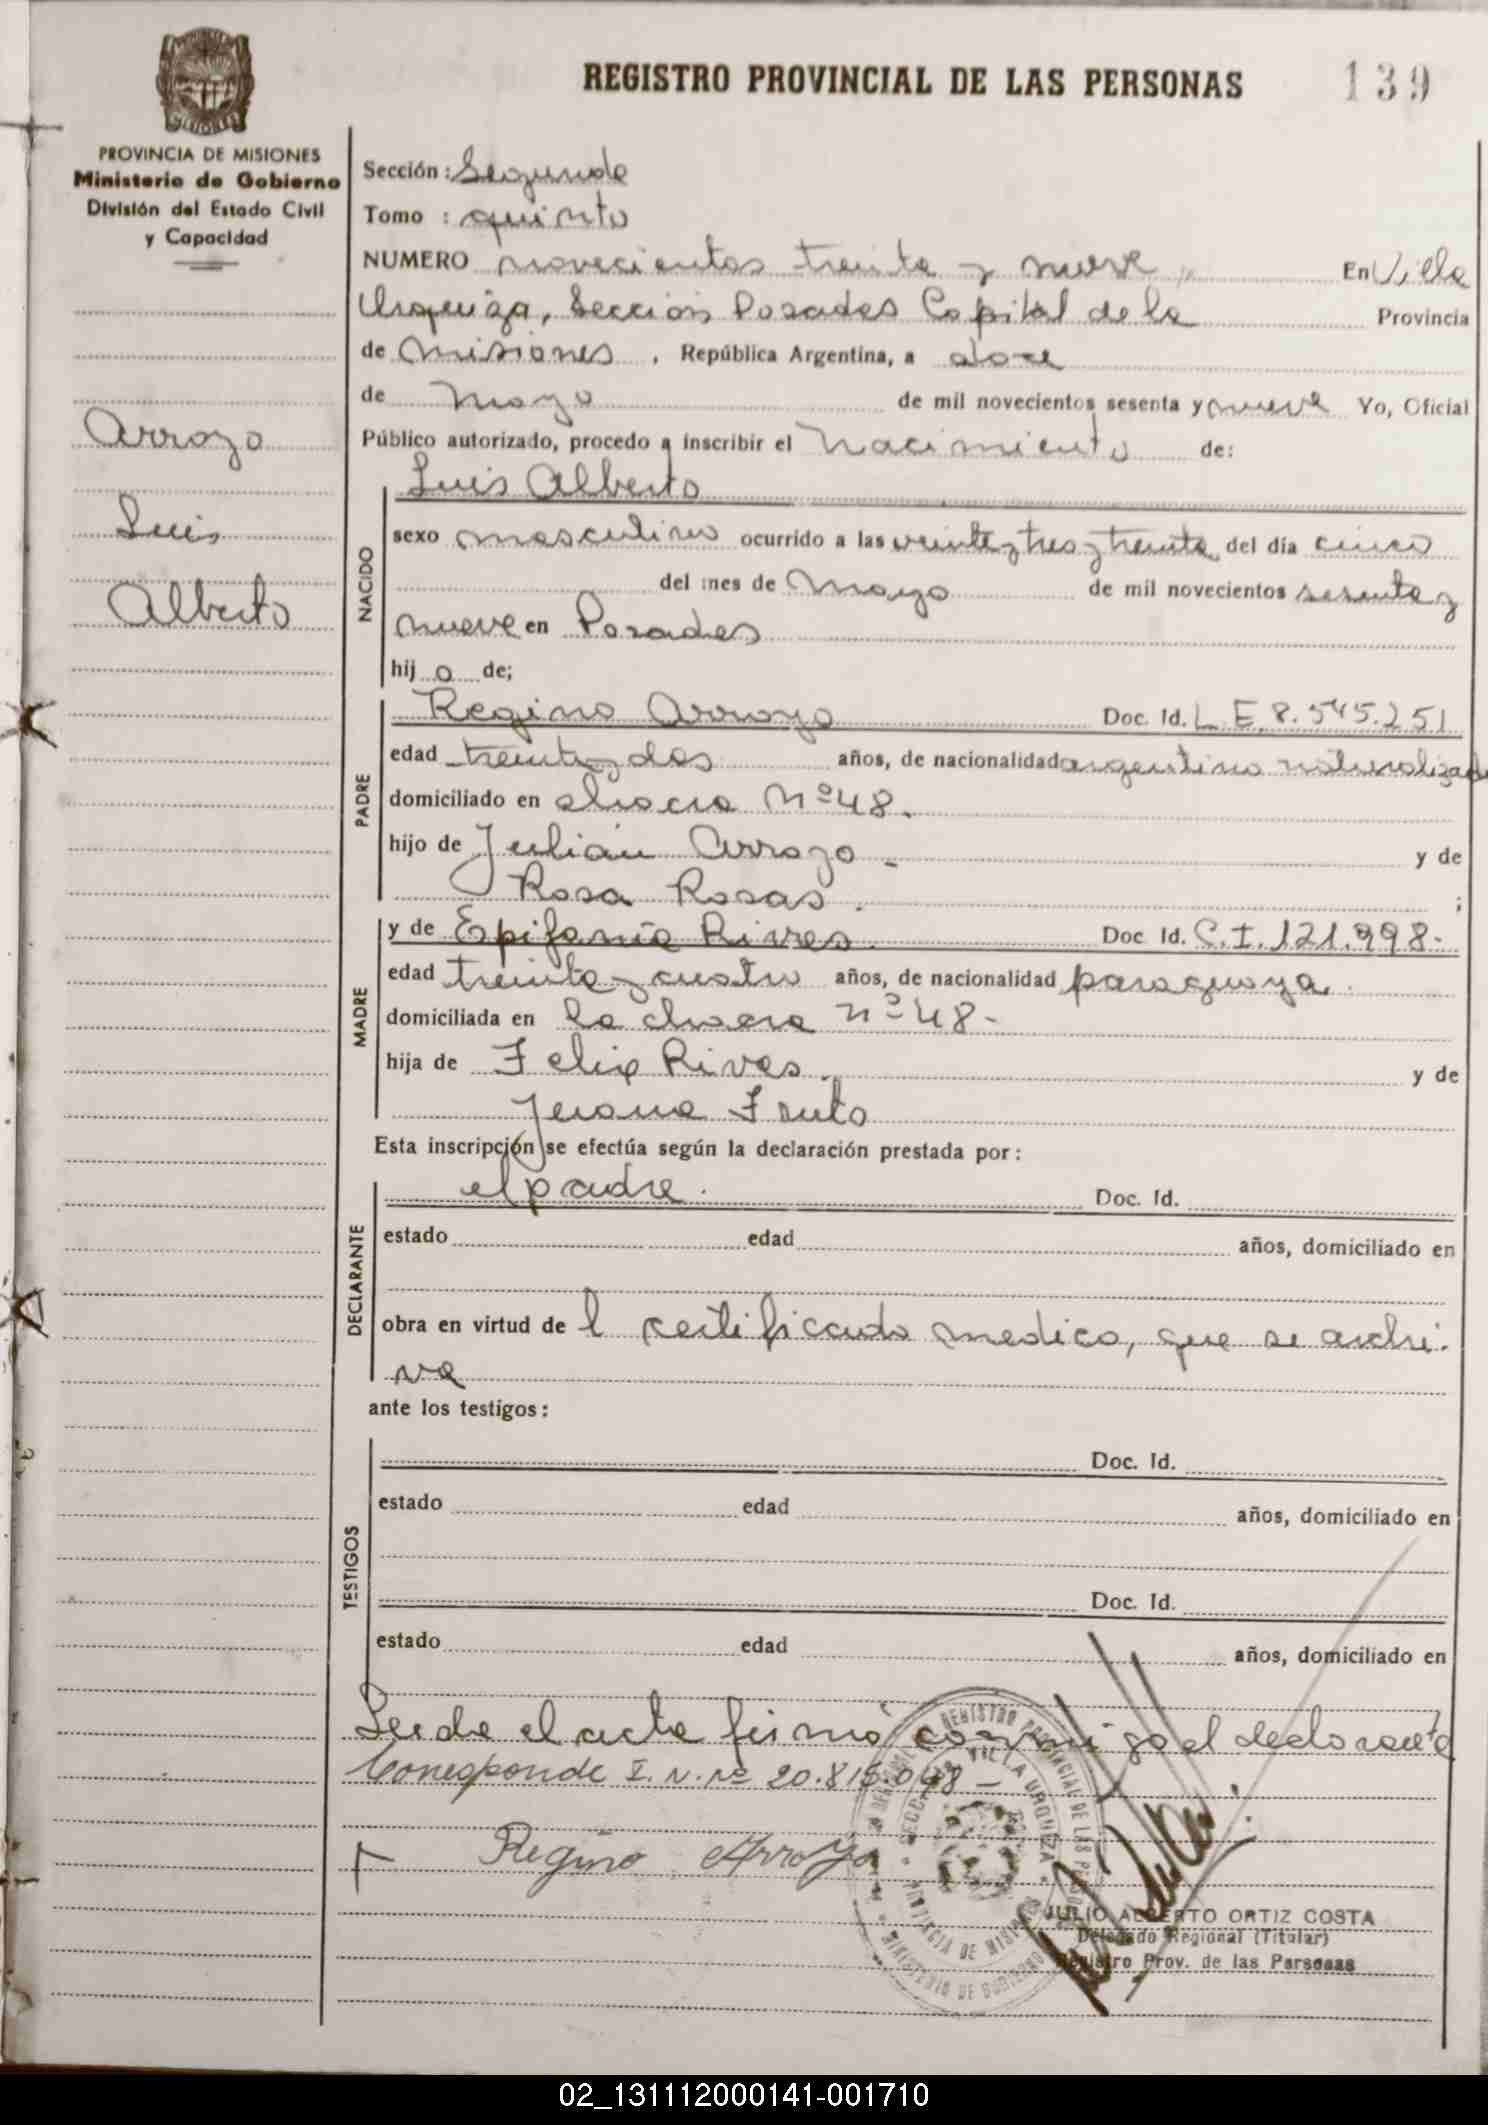 REGISTRO PROVINCIAL DE LAS PERSONAS 139
PROVINCIA DE MISIONES
Ministerio de Gobierno
División del Estado Civil
y Capacidad
Arroyo
Luis
Alberto
Sección : Segunda
Tomo : quinto
NUMERO novecientos treinta y nueve, En Villa
Urquiza, Sección Posadas Capital de la Provincia
de Misiones, República Argentina, a doce
de Mayo de mil novecientos sesenta y nueve Yo, Oficial
Público autorizado, procedo a inscribir el Nacimiento de:
NACIDO
Luis Alberto
sexo masculino ocurrido a las veinte y tres y treinta del día cinco
del mes de Mayo de mil novecientos sesenta y
nueve en Posadas
hij o de;
PADRE
Regino Arroyo Doc. Id. L.E. 8.545.251
edad treinta y dos años, de nacionalidad argentino naturalizado
domiciliado en chacra Nº 48.
hijo de Julián Arroyo - y de
Rosa Rosas. ;
MADRE
y de Epifania Rivas. Doc Id. C.I. 121.998-
edad treinta y cuatro años, de nacionalidad paraguaya.
domiciliada en la chacra nº 48-
hija de Felix Rivas. y de
Fruto
Esta inscripción se efectúa según la declaración prestada por :
DECLARANTE
el padre. Doc. Id.
estado edad años, domiciliado en
obra en virtud de l certificado medico, que se archi-
va
ante los testigos :
TESTIGOS
Doc. Id.
estado edad años, domiciliado en
Doc. Id.
estado edad años, domiciliado en
Leida el acta firmó conmigo el declarante
Corresponde I. N. Nº 20.815.098-
Regino Arroyo
REGISTRO PROVINCIAL DE LAS PERSONAS
SECCION VILLA URQUIZA
PROVINCIA DE MISIONES
MINISTERIO DE GOBIERNO
JULIO ALBERTO ORTIZ COSTA
Delegado Regional (Titular)
Registro Prov. de las Personas
02_131112000141-001710